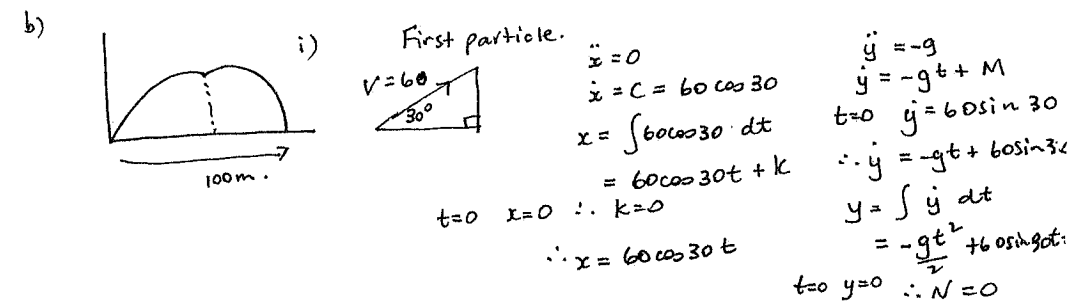 b)
i) First particle.
V = 60
30°
100m.
ẍ = 0
ẋ = C = 60 cos 30
x = ∫60cos30 · dt
= 60cos30t + k
t=0 x=0 ∴ k=0
∴ x = 60 cos 30 t
ÿ = -g
ẏ = -gt + M
t=0 ẏ = 60 sin 30
∴ ẏ = -gt + 60sin 30
y = ∫ ẏ dt
= -gt²/2 + 60 sin 30t
t=0 y=0 ∴ N = 0